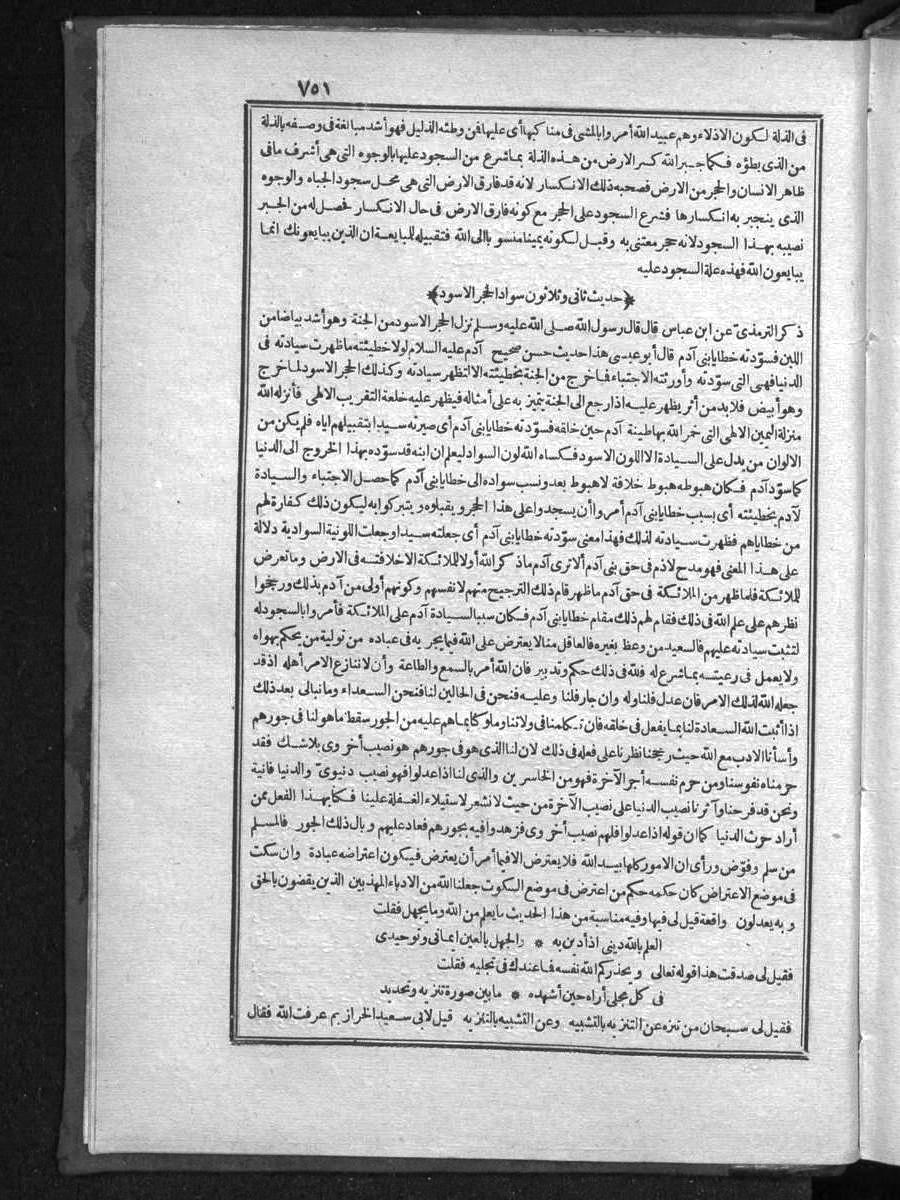 ٧٥١
فى الذلة لكون الاذلاء وهم عبيد الله أمروا بالمشى فى مناكبها أى عليها فمن وطئه الذليل فهو أشد مبالغة فى وصفه بالذلة
من الذى يطؤه فكما جبر الله كسر الارض من هذه الذلة بما شرع من السجود عليها بالوجوه التى هى أشرف ما فى
ظاهر الانسان والحجر من الارض فصحبه ذلك الانكسار لانه قد فارق الارض التى هى محل سجود الجباه والوجوه
الذى ينجبر به انكسارها فشرع السجود على الحجر مع كونه فارق الارض فى حال الانكسار فحصل له من الجبر
نصيبه بهذا السجود لانه حجر معتنى به وقبل لكونه يمينا منسوبا الى الله فتقبيله للمبايعة ان الذين يبايعونك انما
يبايعون الله فهذه علة السجود عليه
﴿حديث ثانى وثلاثون سواد الحجر الاسود﴾
ذكر الترمذىّ عن ابن عباس قال قال رسول الله صلى الله عليه وسلم نزل الحجر الاسود من الجنة وهو أشد بياضا من
اللبن فسوّدته خطايا بنى آدم قال أبو عيسى هذا حديث حسن صحيح آدم عليه السلام لولا خطيئته ما ظهرت سيادته فى
الدنيا فهى التى سوّدته وأورثته الاجتباء فما خرج من الجنة بخطيئته الا لتظهر سيادته وكذلك الحجر الاسود لما خرج
وهو أبيض فلا بد من أثر يظهر عليه اذا رجع الى الجنة يتميز به على أمثاله فيظهر عليه خلعة التقريب الالهى فأنزله الله
منزلة اليمين الالهى التى خمر الله بها طينة آدم حين خلقه فسوّدته خطايا بنى آدم أى صيرته سيدا بتقبيلهم اياه فلم يكن من
الالوان من يدل على السيادة الا اللون الاسود فكساه الله لون السواد ليعلم ان ابنه قد سوّده بهذا الخروج الى الدنيا
كما سوّد آدم فكان هبوطه هبوط خلافة لا هبوط بعد ونسب سواده الى خطايا بنى آدم كما حصل الاجتباء والسيادة
لآدم بخطيئته أى بسبب خطايا بنى آدم أمروا أن يسجدوا على هذا الحجر ويقبلوه ويتبركوا به ليكون ذلك كفارة لهم
من خطاياهم فظهرت سيادته لذلك فهذا معنى سوّدته خطايا بنى آدم أى جعلته سيدا وجعلت اللونية السوادية دلالة
على هذا المعنى فهو مدح لا ذم فى حق بنى آدم ألا ترى آدم ما ذكر الله أولا للملائكة الا خلافته فى الارض وما تعرض
للملائكة فلما ظهر من الملائكة فى حق آدم ما ظهر قام ذلك الترجيح منهم لانفسهم وكونهم أولى من آدم بذلك ورجحوا
نظرهم على علم الله فى ذلك فقام لهم ذلك مقام خطايا بنى آدم فكان سببا لسيادة آدم على الملائكة فأمروا بالسجود له
لتثبت سيادته عليهم فالسعيد من وعظ بغيره فالعاقل منا لا يعترض على الله فيما يجريه فى عباده من تولية من يحكم بهواه
ولا يعمل فى رعيته بما شرع له فلله فى ذلك حكم وتدبير فان الله أمر بالسمع والطاعة وأن لا ننازع الامر أهله اذ قد
جعله الله لذلك الامر فان عدل فلنا وله وان جار فلنا وعليه فنحن فى الحالين لنا فنحن السعداء وما نبالى بعد ذلك
اذا أثبت الله السعادة لنا بما يفعل فى خلقه فان تكلمنا فى ولاتنا وملوكنا بما هم عليه من الجور سقط ما هو لنا فى جورهم
وأسأنا الادب مع الله حيث رجحنا نظرنا على فعله فى ذلك لان لنا الذى هو فى جورهم هو نصيب أخروى بلا شك فقد
حرمناه نفوسنا ومن حرم نفسه أجر الآخرة فهو من الخاسرين والذى لنا اذا عدلوا فهو نصيب دنيوىّ والدنيا فانية
ونحن قد فرحنا وآثرنا نصيب الدنيا على نصيب الآخرة من حيث لا نشعر لاستيلاء الغفلة علينا فكنا بهذا الفعل ممن
أراد حرث الدنيا كما ان قوله اذا عدلوا فلهم نصيب أخروى فزهدوا فيه بجورهم فعاد عليهم وبال ذلك الجور فالمسلم
من سلم وفوّض ورأى ان الامور كلها بيد الله فلا يعترض الا فيما أمر أن يعترض فيكون اعتراضه عبادة وان سكت
فى موضع الاعتراض كان حكمه حكم من اعترض فى موضع السكوت جعلنا الله من الادباء المهذبين الذين يقضون بالحق
وبه يعدلون واقعة قيل لى فيها وفيه مناسبة من هذا الحديث ما يعلم من الله وما يجهل فقلت
العلم بالله دينى اذ أدين به * والجهل بالعين ايمانى وتوحيدى
فقيل لى صدقت هذا قوله تعالى ويحذركم الله نفسه فما عندك فى تجليه فقلت
فى كل مجلى أراه حين أشهده * ما بين صورة تنزيه وتحديد
فقيل لى سبحان من تنزه عن التنزيه بالتشبيه وعن التشبيه بالتنزيه قيل لابى سعيد الخراز بم عرفت الله فقال